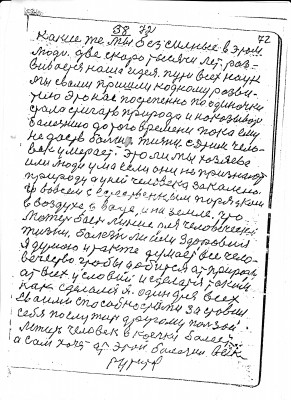 38 72
72
Какие же мы бессильные в этом
люди. две скоро тысячи лет раз-
вивается наша идея. пути всех наук
мы свои пришли к одному разви-
тию это нас постепенно по одиночки
стала съедать природа и наказывать
болезнию до того времени пока ему
не даст болеть жизни с этим чело-
век умерает. Это ли мы хозяева
или люди ума если они не признают
природу а учеł человека закалено-
го вовсем с естественным порядкам
в воздухе, в воде, и на земле, это
Может быть лишние для человеческой
жизни, болезни ли или здоровия
Я думаю и также думает все чело-
вечество чтобы добится от природы
от всех условий и сделатся таким
как сделался я. один для всех
своими способностями за собою
себя послужит другому пользой.
человек в койки болеет
а сам хочет от этой болезни